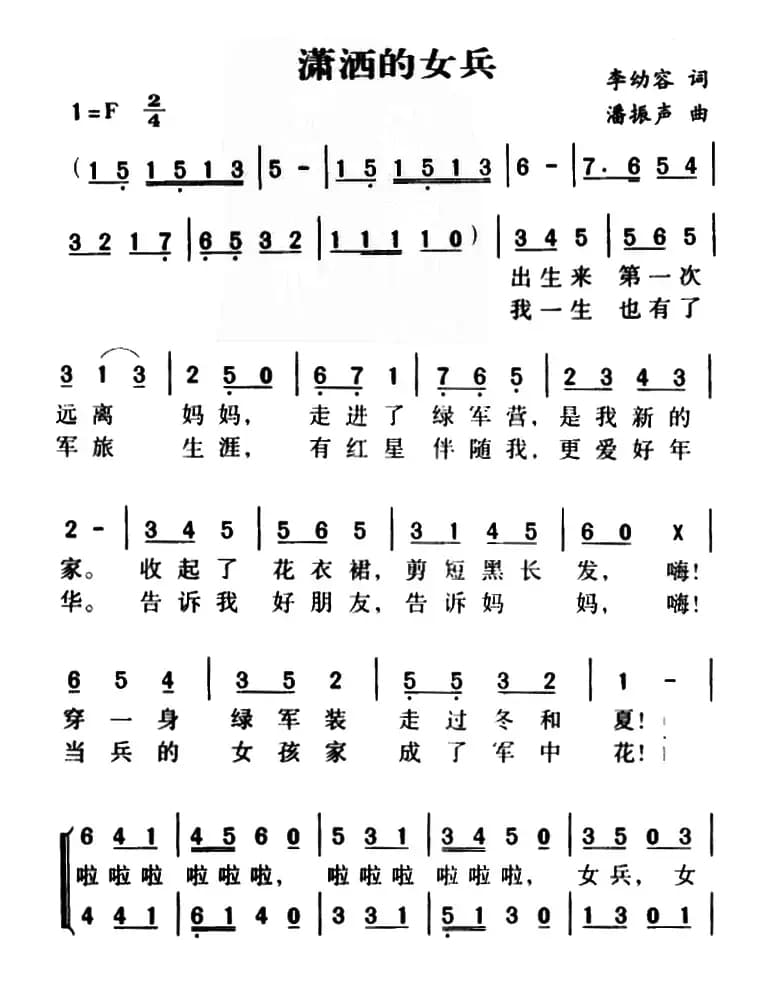 潇洒的女兵
李幼容 词
1=F 2/4
潘振声 曲
(1 5 1 5 1 3 | 5 - | 1 5 1 5 1 3 | 6 - | 7. 6 5 4 |
3 2 1 7 | 6 5 3 2 | 1 1 1 1 0) | 3 4 5 | 5 6 5 |
出生来 第一次
我一生 也有了
3 1 3 | 2 5 0 | 6 7 1 | 7 6 5 | 2 3 4 3 |
远离 妈妈, 走进了 绿军营, 是我新的
军旅 生涯, 有红星 伴随我, 更爱好年
2 - | 3 4 5 | 5 6 5 | 3 1 4 5 | 6 0 X |
家。 收起了 花衣裙, 剪短黑长 发, 嗨!
华。 告诉我 好朋友, 告诉妈 妈, 嗨!
6 5 4 | 3 5 2 | 5 5 3 2 | 1 - |
穿一身 绿军装 走过冬和 夏!
当兵的 女孩家 成了军中 花!
6 4 1 | 4 5 6 0 | 5 3 1 | 3 4 5 0 | 3 5 0 3 |
啦啦啦 啦啦啦, 啦啦啦 啦啦啦, 女兵, 女
4 4 1 | 6 1 4 0 | 3 3 1 | 5 1 3 0 | 1 3 0 1 |